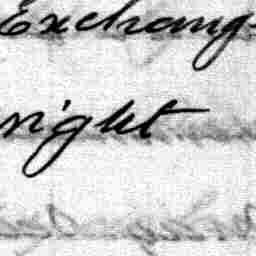 Exchang
right